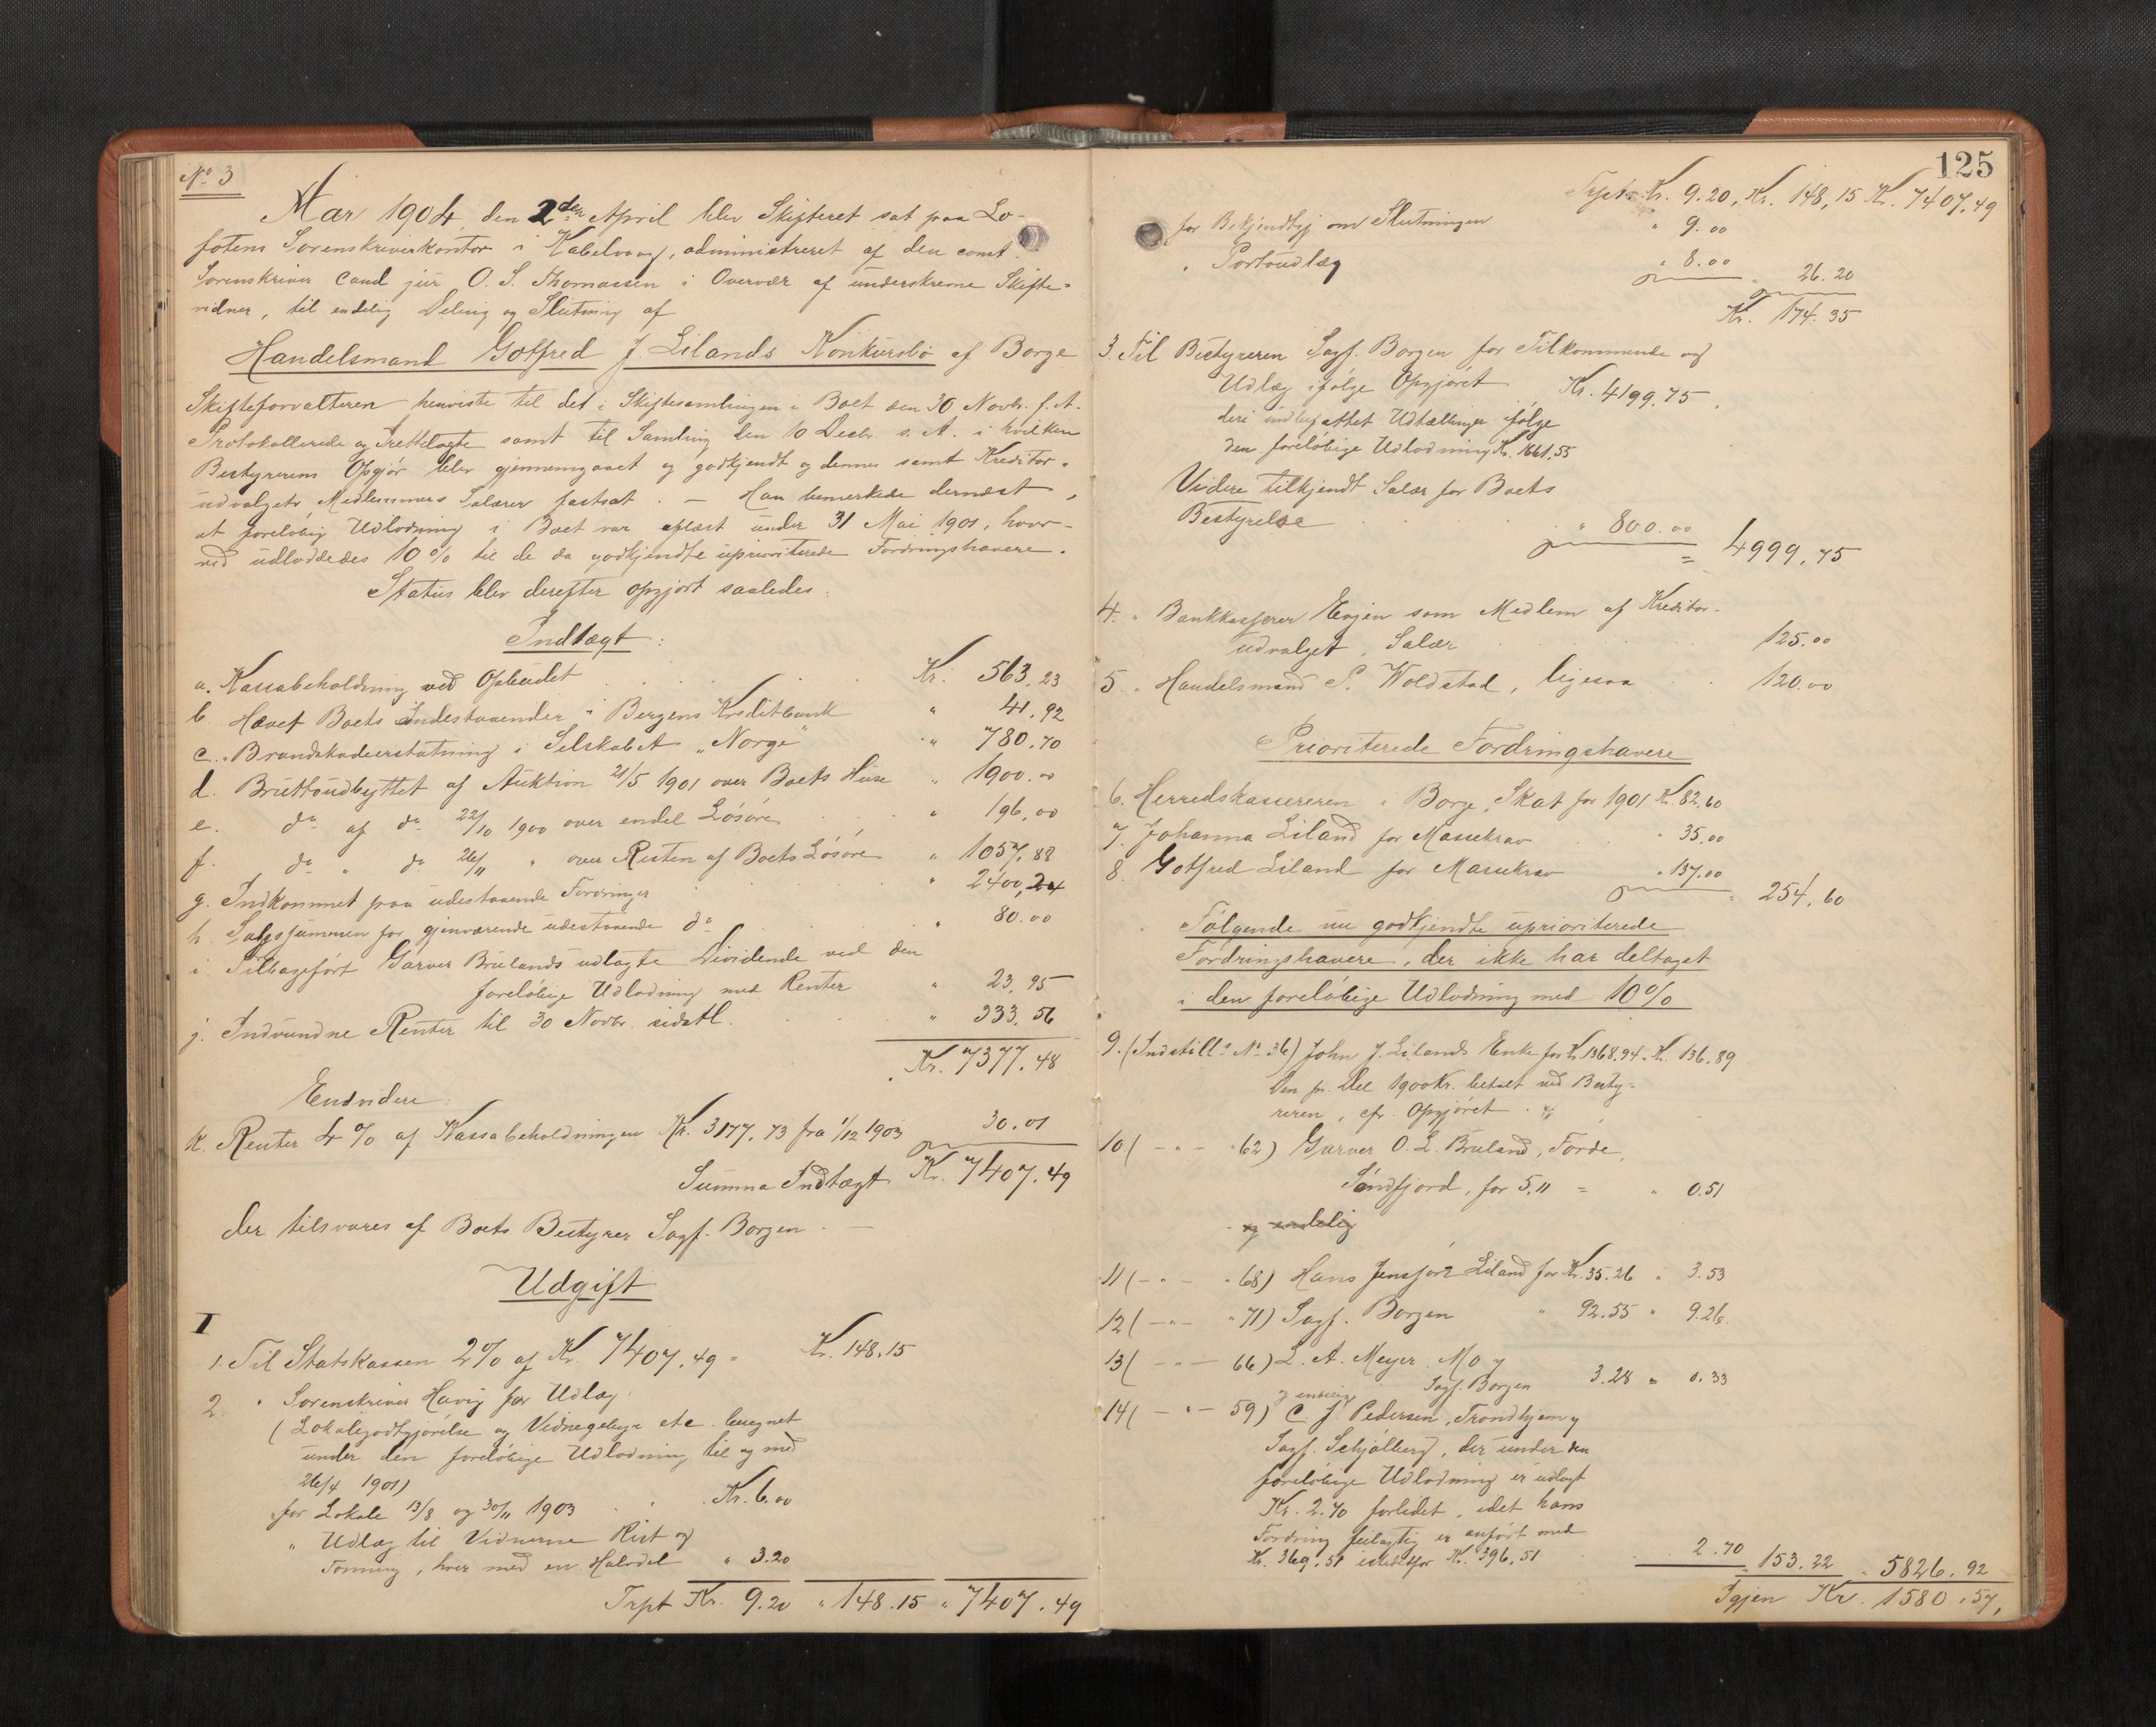 No 3
Aar 1904 den 2den April blev Skifteret sat paa Lo-
fotens Sorenskriverkontor i Kabelvaag, administreret af den const.
Sorenskriver cand jur O. S. Thomassen i Overvær af underskrevne Skifte-
vidner, til endelig Deling og Slutning af
Handelsmand Gotfred J. Lilands Konkursbo af Borge
Skifteforvalteren henviste til det i Skiftesamlingen i Boet den 30 Novbr. f. A.
Protokollerede og Fremlagte samt til Samling den 10 Decbr. s. A. i hvilken
Bestyrerens Opgjør blev gjennemgaaet og godkjendt og dennes samt Kreditor-
udvalgets Medlemmers Salærer fastsat. — Han bemerkede dernæst,
at foreløbig Udlodning i Boet var aflæst under 31 Mai 1901, hvor-
ved udloddedes 10% til de da godkjendte uprioriterede Fordringshavere.
Status blev derefter opgjort saaledes:
Indtægt:
a. Kassabeholdning ved Opbudet Kr. 563,23
b. Hævet Boets Indestaaender i Bergens Kreditbank " 41,92
c. Brandskadeerstatning i Selskabet „Norge" " 780,70
d. Bruttoudbyttet af Auktion 21/5 1901 over Boets Huse " 1900.00
e. do af do 22/10 1900 over endel Løsøre " 196,00
f. do " do 26/11 " over Resten af Boets Løsøre " 1057,88
g. Indkommet paa udestaaende Fordringer " 2400,24
h. Salgssummen for gjenværende udestaaende do " 80.00
i. Tilbageført Garver Brulands udlagte Dividende ved den
foreløbige Udlodning med Renter " 23,95
j. Indvundne Renter til 30 Novbr. sidstl. " 333,56
Kr. 7377.48
Endvidere:
k. Renter 4% af Kassabeholdningen Kr. 3177,73 fra 1/12 1903 30.01
Summa Indtægt Kr. 7407.49
der tilsvares af Boets Bestyrer Sagf. Borgen. —
Udgift
I
1. Til Statskassen 2% af Kr. 7407.49 = Kr. 148.15
2. " Sorenskriver Havig for Udlæg:
(Lokalegodtgjørelse og Vidnegebyr etc. beregnet
under den foreløbige Udlodning til og med
26/4 1901)
for Lokale 13/8 og 30/11 1903 Kr. 6.00
" Udlæg til Vidnerne Rist og
Tonning, hver med en Halvdel " 3.20
Trpt Kr. 9.20 " 148.15 " 7407.49
125
Trpt. Kr. 9.20, Kr. 148,15 Kr. 7407.49
for Bekjendtgj om Slutningen " 9.00
" Portoudlæg " 8.00 " 26.20
Kr. 174.35
3. Til Bestyreren Sagf. Borgen for Tilkommende og
Udlæg ifølge Opgjøret Kr. 4199.75
deri indbefattet Udtællinger ifølge
den foreløbige Udlodning Kr. 1661,55
Videre tilkjendt Salær for Boets
Bestyrelse " 800.00
= 4999.75
4. " Bankkasserer Evjen som Medlem af Kreditor-
udvalget, Salær 125.00
5. " Handelsmand S. Woldstad, ligesaa 120.00
Prioriterede Fordringshavere
6. Herredskassereren i Borge, Skat for 1901 Kr. 82.60
7. Johanna Liland for Massekrav " 35.00
8. Gotfred Liland for Massekrav " 137.00
" 254.60
Følgende nu godkjendte uprioriterede
Fordringshavere, der ikke har deltaget
i den foreløbige Udlodning med 10%
9. (Indstill.s No 36) John J. Lilands Enke for Kr 1368.94 Kr. 136.89
Den pr. Del 1900 Kr. betalt ved Besty-
reren, cfr. Opgjøret.
10 ( — " — " 62) Garver O. L. Bruland, Førde,
Søndfjord, for 5.11 = " 0.51
og endelig
11 ( — " — " 68) Hans Jensfort Liland for Kr. 35.26 " 3.53
12 ( — " — " 71) Sagf. Borgen " 92.55 " 9.26
13 ( — " — 66) L. A. Meyer. Mo v
Sagf. Borgen 3.28 " 0.33
og endelig
14 ( — " — 59) C. J. Pedersen, Trondhjem v
Sagf. Schjølberg, der under den
foreløbige Udlodning er udlagt
Kr. 2.70 forlidet, idet hans
Fordring feilagtig er anført med
Kr. 369.51 istedetfor Kr. 396.51 2.70
" 153.22 " 5826.92
Igjen Kr. 1580.57,